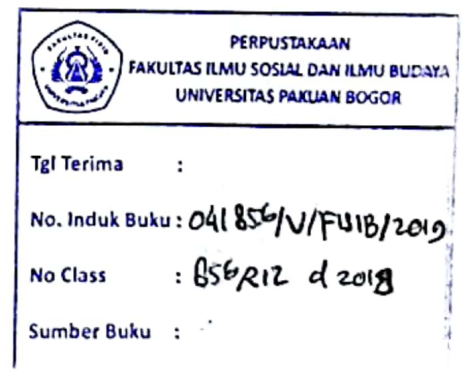 PERPUSTAKAAN
FAKULTAS ILMU SOSIAL DAN ILMU BUDAYA
UNIVERSITAS PAKUAN BOGOR
Tgl Terima :
No. Induk Buku : 041856/V/FISIB/2019
No Class : 656 RIZ d 2018
Sumber Buku :